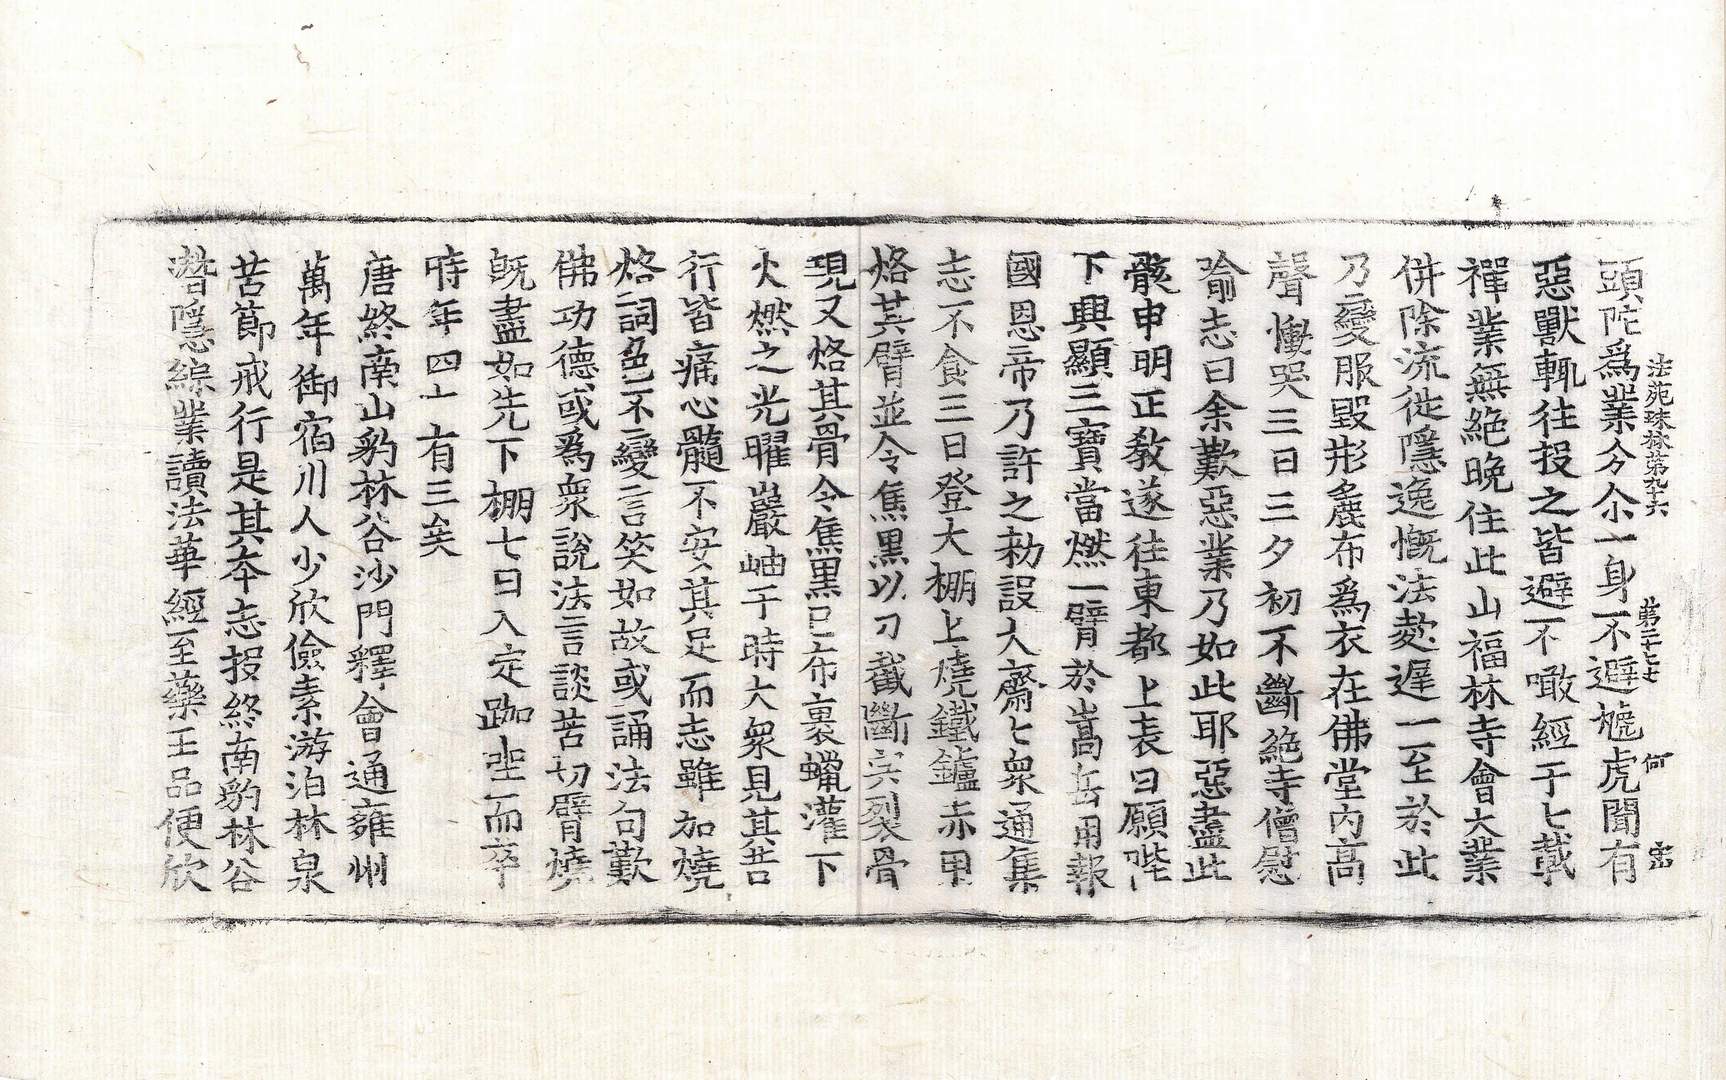 法苑珠林第九十六　第二十七　何　宓
頭陀爲業分尒一身不避虓虎聞有
惡獸輒往投之皆避不噉經于七載
禪業無絶晩住此山福林寺會大業
併除流徙隱逸慨法㱡遲一至於此
乃變服毀形麁布爲衣在佛堂内高
聲慟哭三日三夕初不斷絶寺僧慰
喻志曰余歎惡業乃如此耶惡盡此
骸申明正敎遂往東都上表曰願陛
下興顯三寶當燃一臂於嵩岳用報
國恩帝乃許之勑設大齋七衆通集
志不食三日登大棚上燒鐵鑪赤用
烙其臂並令焦黒以刀截斷宍裂骨
現又烙其骨令焦黒已布裹蠟灌下
火燃之光曜巖岫于時大衆見其苦
行皆痛心髓不安其足而志雖加燒
烙詞色不變言笑如故或誦法句歎
佛功德或爲衆說法言談苦切臂燒
旣盡如先下棚七日入定跏坐而卒
時年四十有三矣
唐終南山豹林谷沙門釋會通雍州
萬年御宿川人少欣儉素游泊林泉
苦節戒行是其夲志投終南豹林谷
瞥隱綜業讀法華經至藥王品便欣